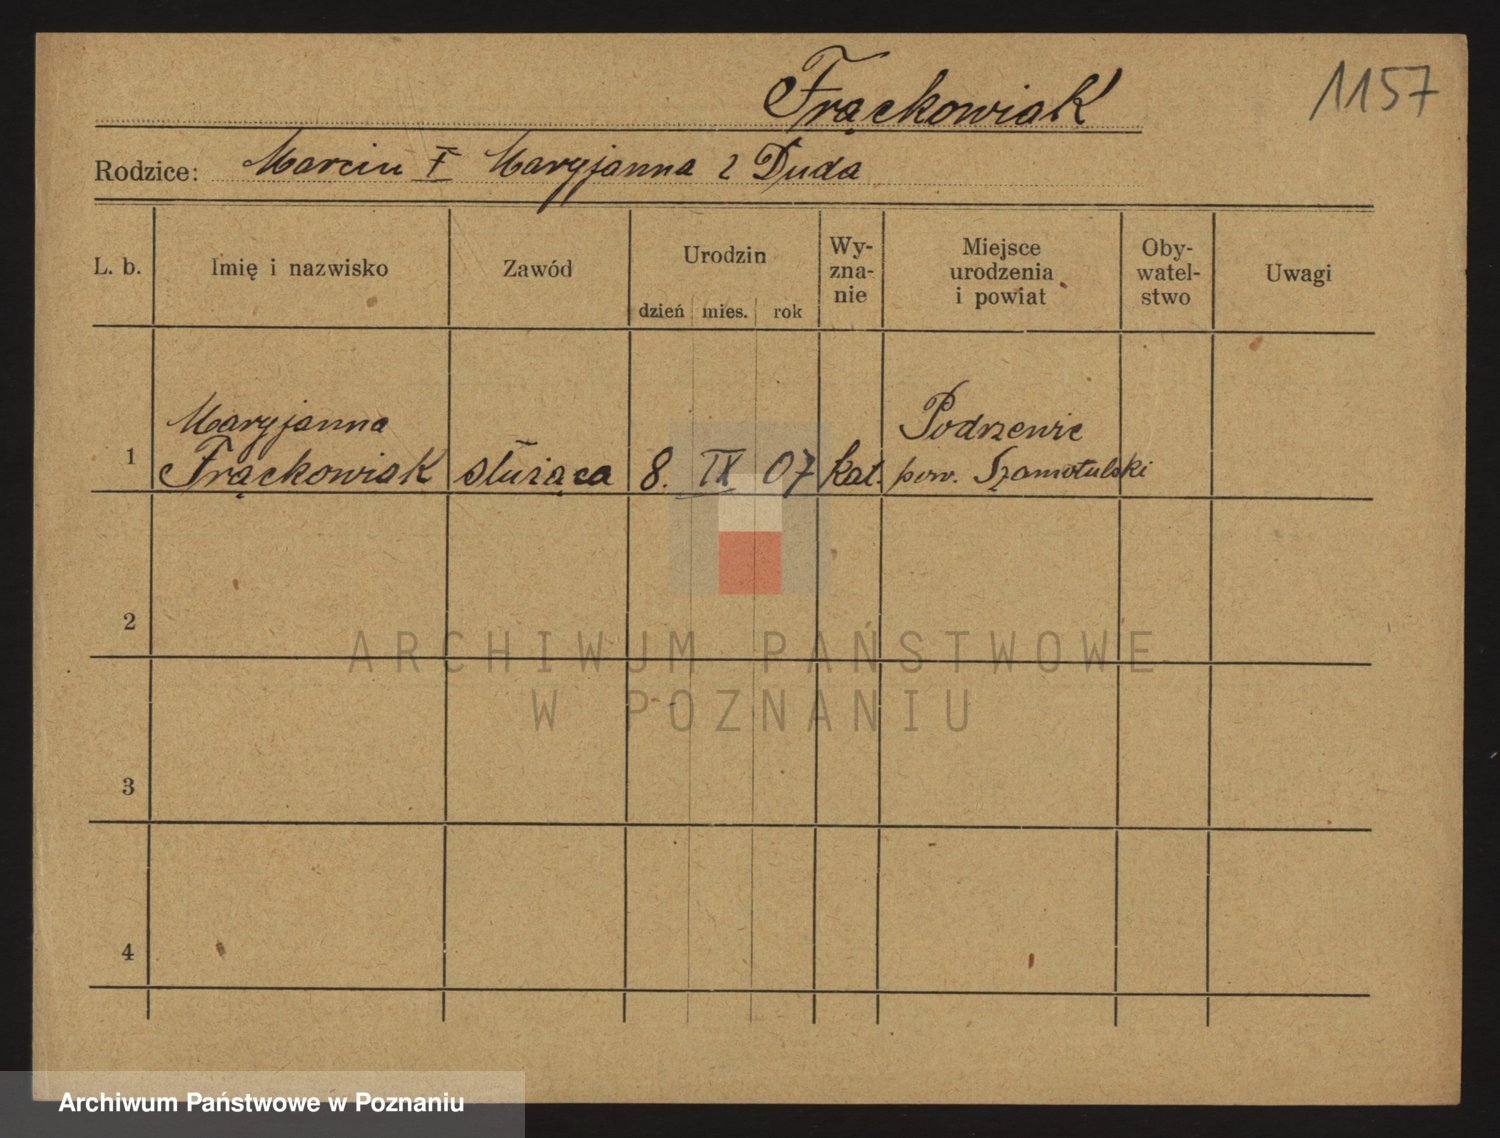 Frąckowiak
1157
Rodzice: Marcin † Maryjanna z Duda
L. b.
Imię i nazwisko
Zawód
Urodzin
dzień mies. rok
Wy-
zna-
nie
Miejsce
urodzenia
i powiat
Oby-
watel-
stwo
Uwagi
1
Maryjanna
Frąckowiak
służąca
8. IX 07
kat.
Podrzewie
pow. Szamotulski
2
3
4
ARCHIWUM PAŃSTWOWE
W POZNANIU
Archiwum Państwowe w Poznaniu